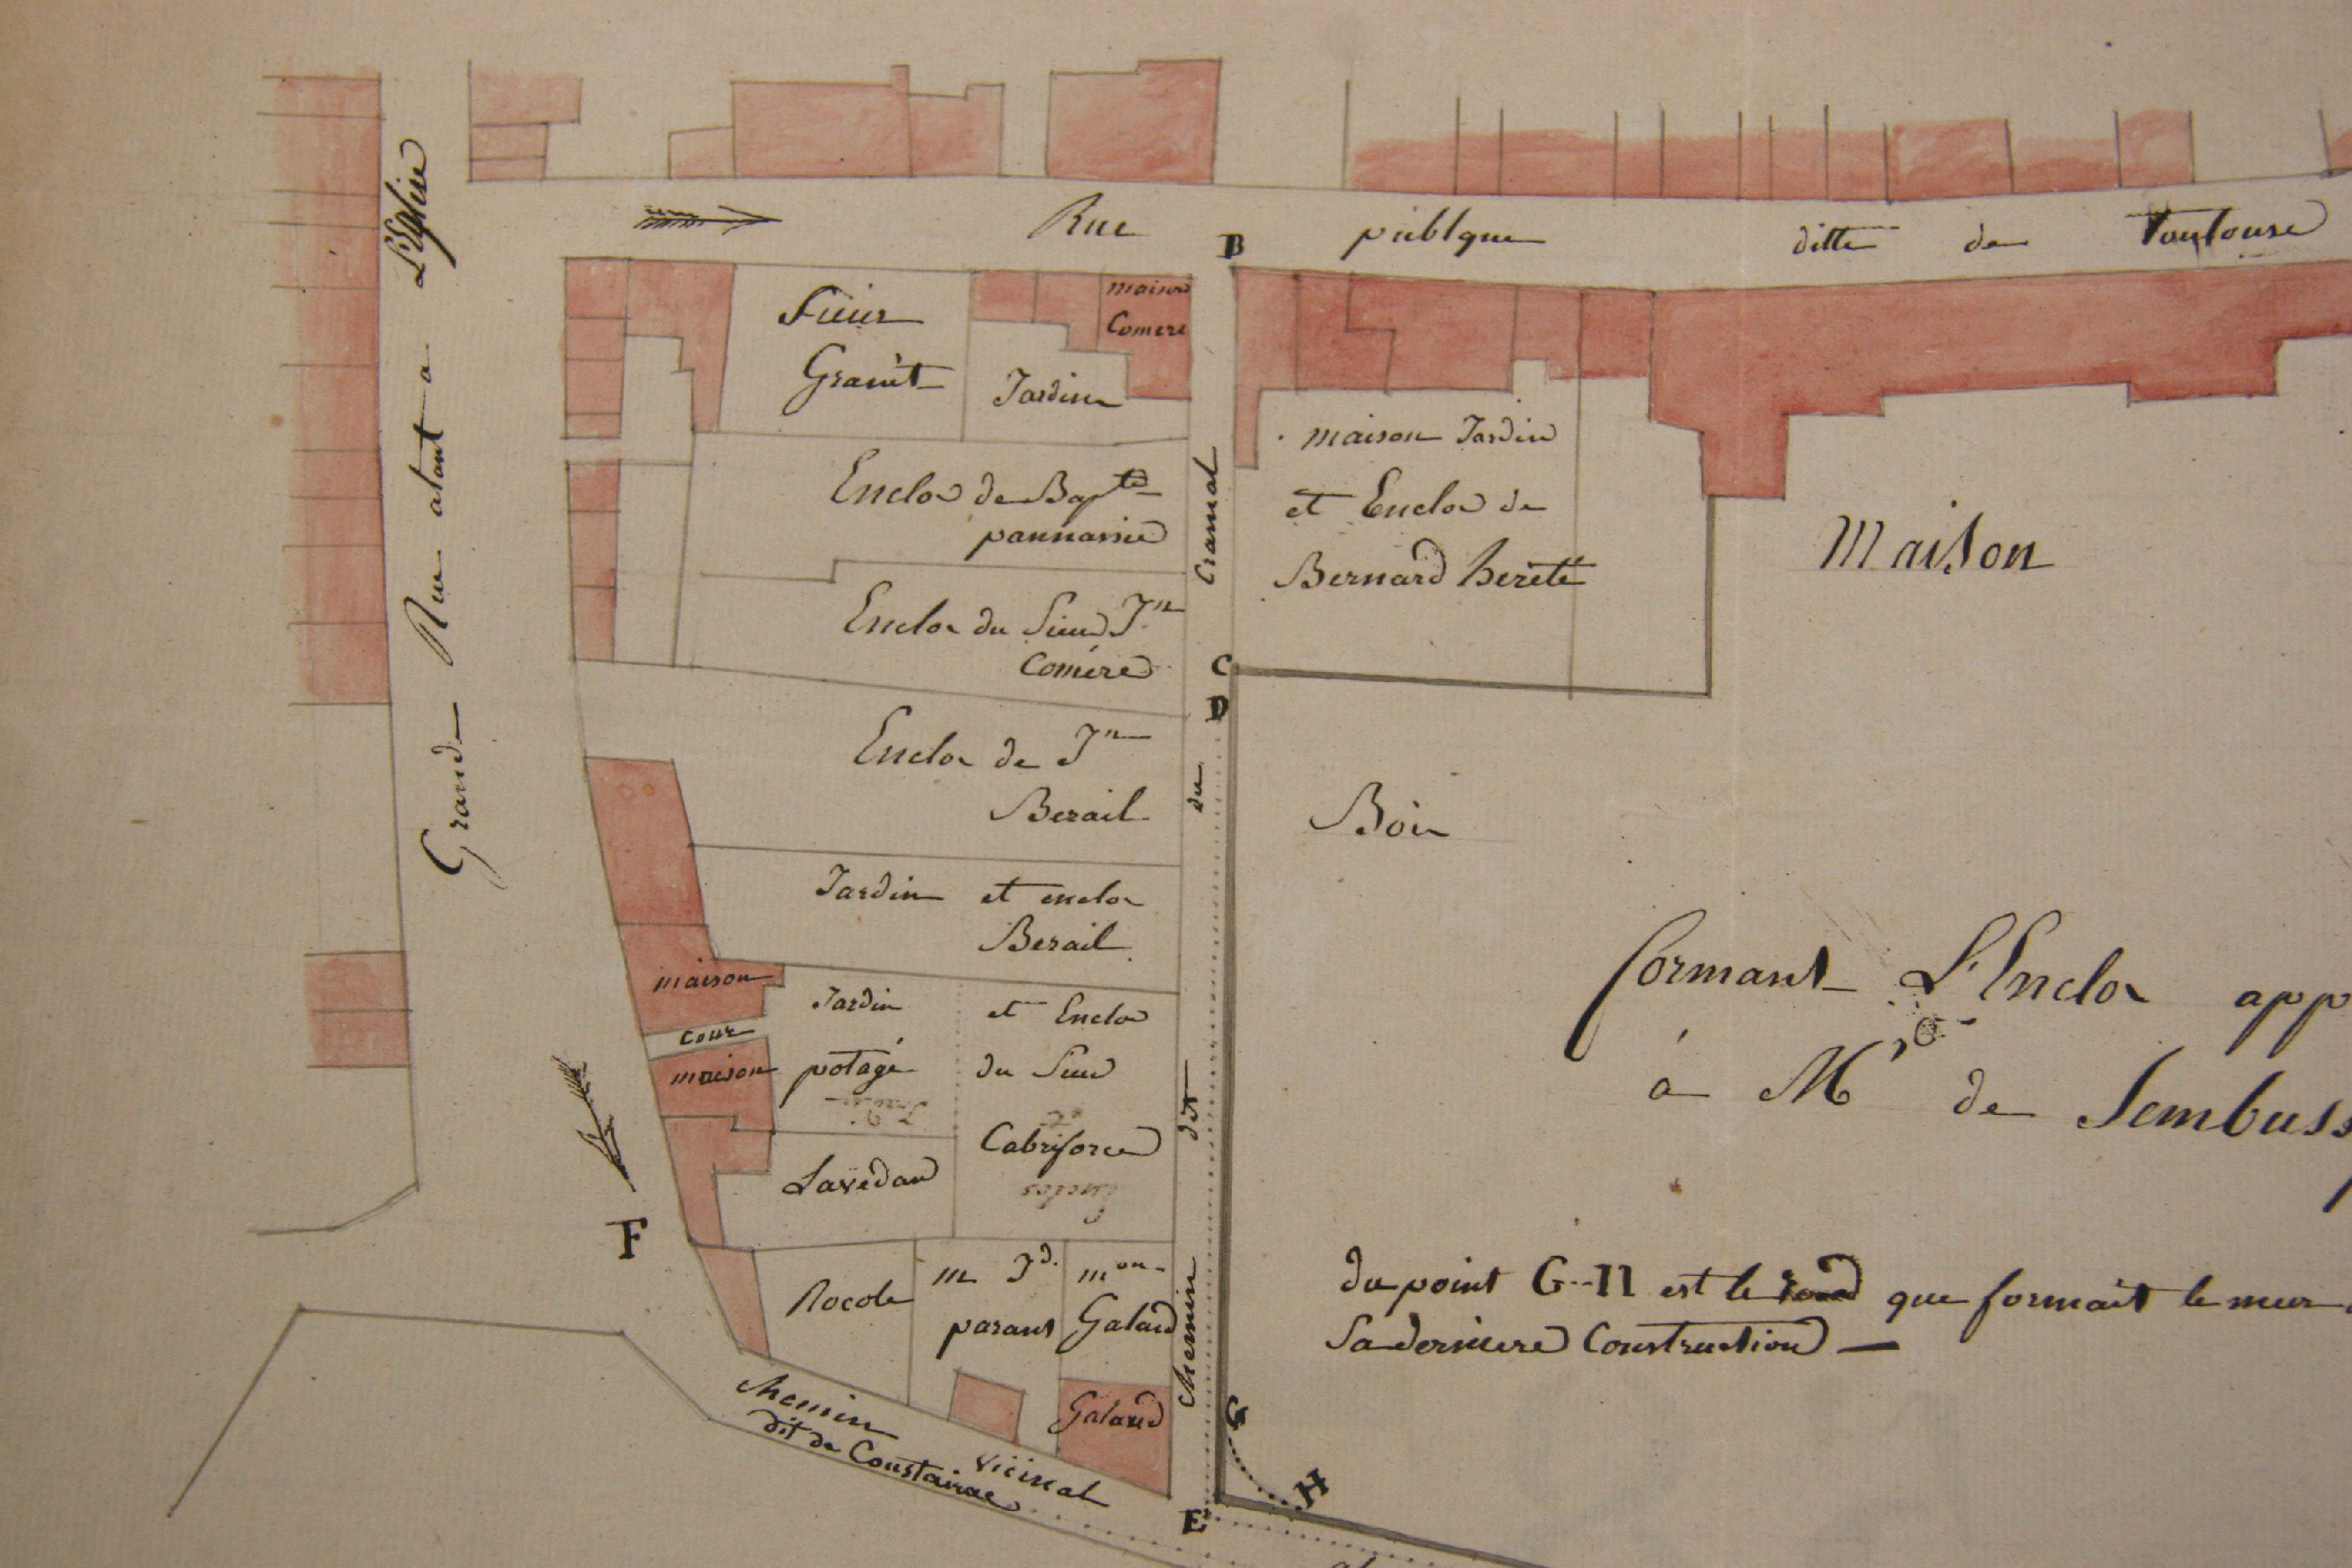 Rue publque ditte de Toulouse
B
Grande Rue alant a L'Eglise
Sieur
Granit
Jardin
maison
Comere
Enclos de Bapte
pannassié
Enclos du Sieur Jn
Comére
Enclos de Jn
Berail
Jardin et enclos
Berail
maison
cour
maison
Jardin et Enclos
potagé du Sieur
Cabriforce
Enclos
Lavedan
Rocole
m Jd.
parant
mon.
Galard
Galard
F
chemin vicinal
dit de Constairac
Chemin dit du Cramat
C
D
E
maison Jardin
et Enclos de
Bernard hereté
Maison
Bois
formant L'Enclos app
á Mr de Sembuss
du point G--H est le rond que formait le mur
Sa derniere Construction —
G
H